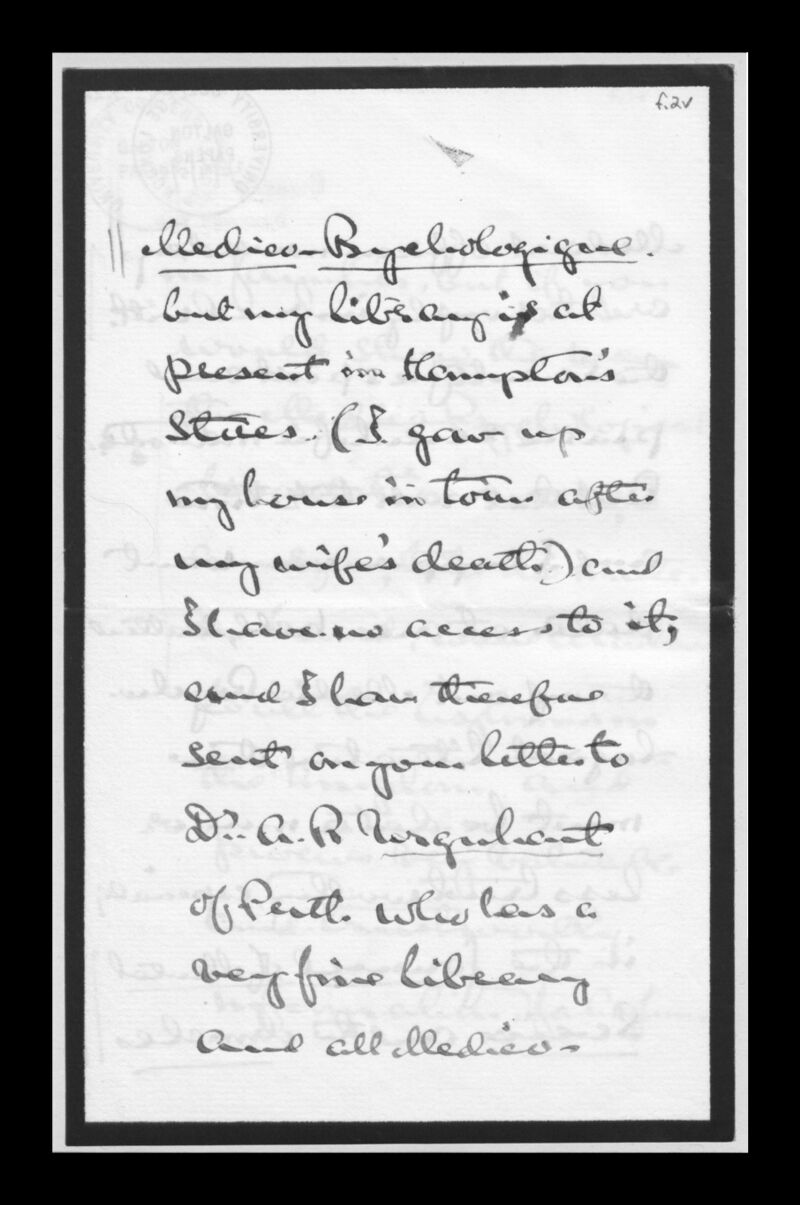 f.2v
Medico-Psychologique.
but my library is at
present in Hampton's
Stores. (I gave up
my house in town after
my wife's death) and
I have no access to it;
and I have therefore
sent on your letter to
Dr. A. R Urquhart
of Perth who has a
very fine library
and all Medico-